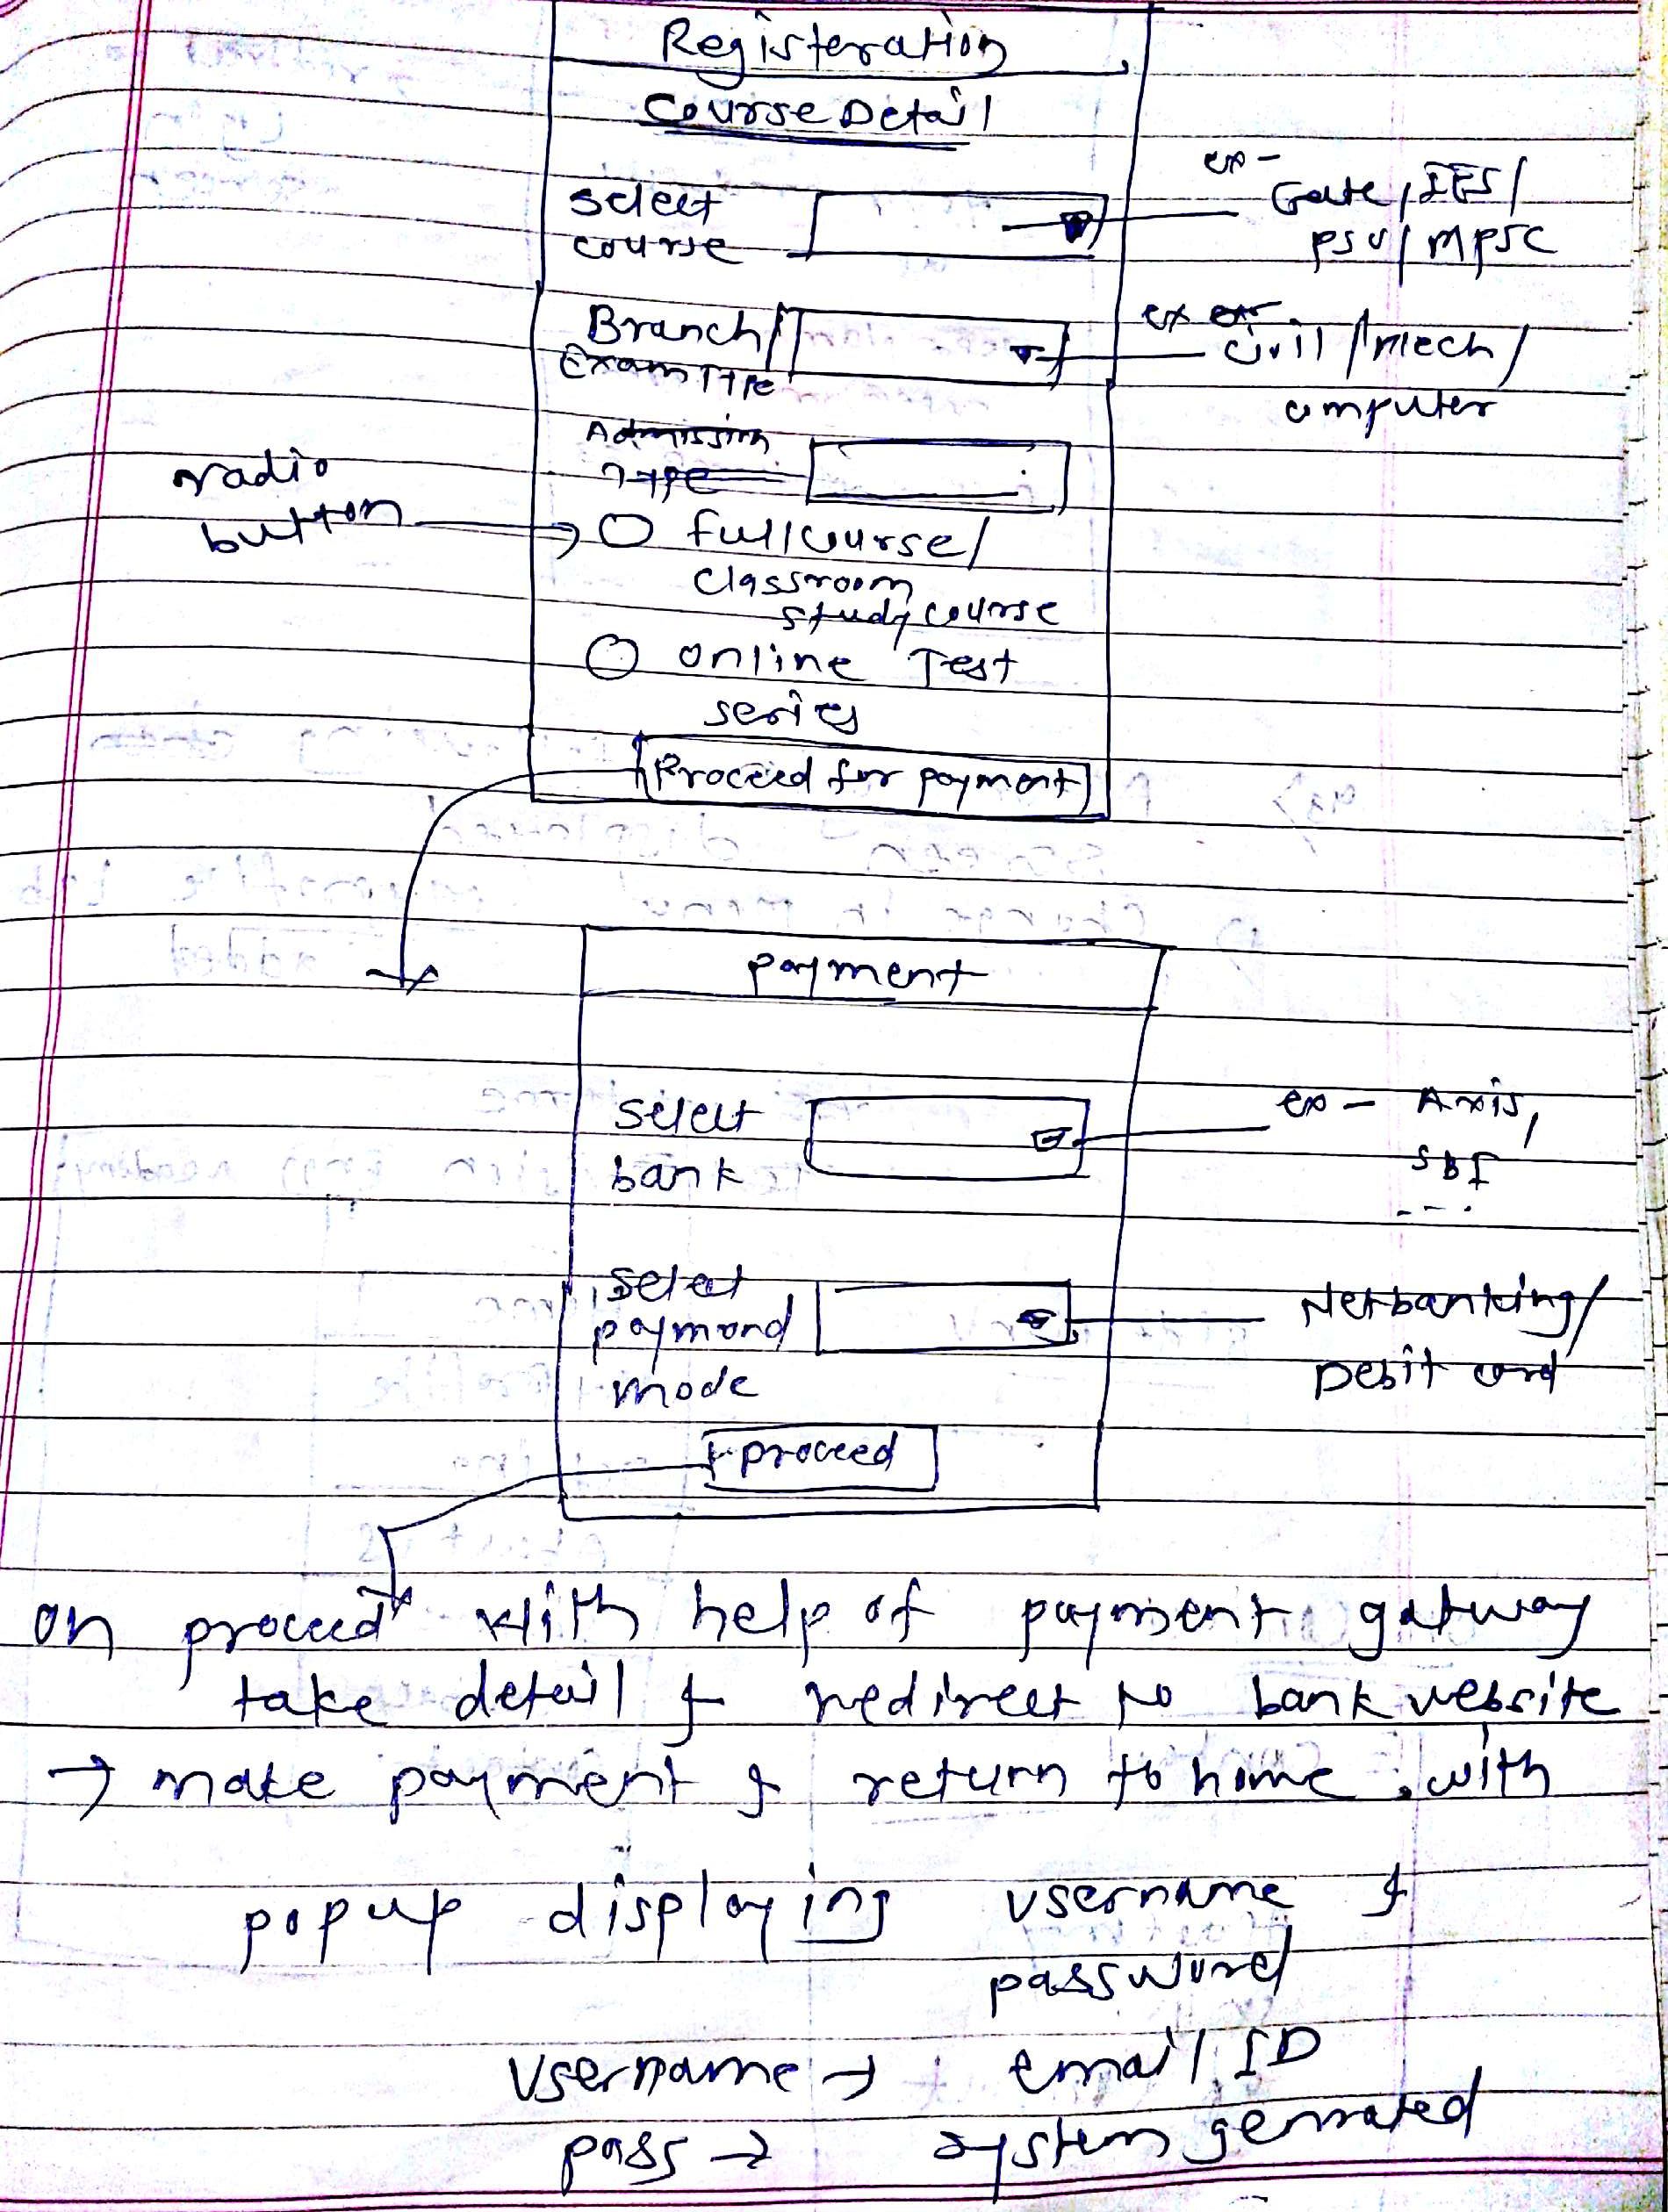 Registeration
Course Detail
select
course
ex -
Gate / IES /
PSU / MPSC
Branch/
Exam Type
ex
civil / Mech /
computer
Admission
Type
radio
button
full course /
classroom
study course
online Test
series
Proceed for payment
payment
select
bank
ex - Axis,
SBI
---
select
paymond
mode
Netbanking /
Debit card
proceed
on proceed with help of payment gatway
take detail & redirect to bank website
→ make payment & return to home. with
popup displaying username &
password
Username → email ID
pass → system genrated